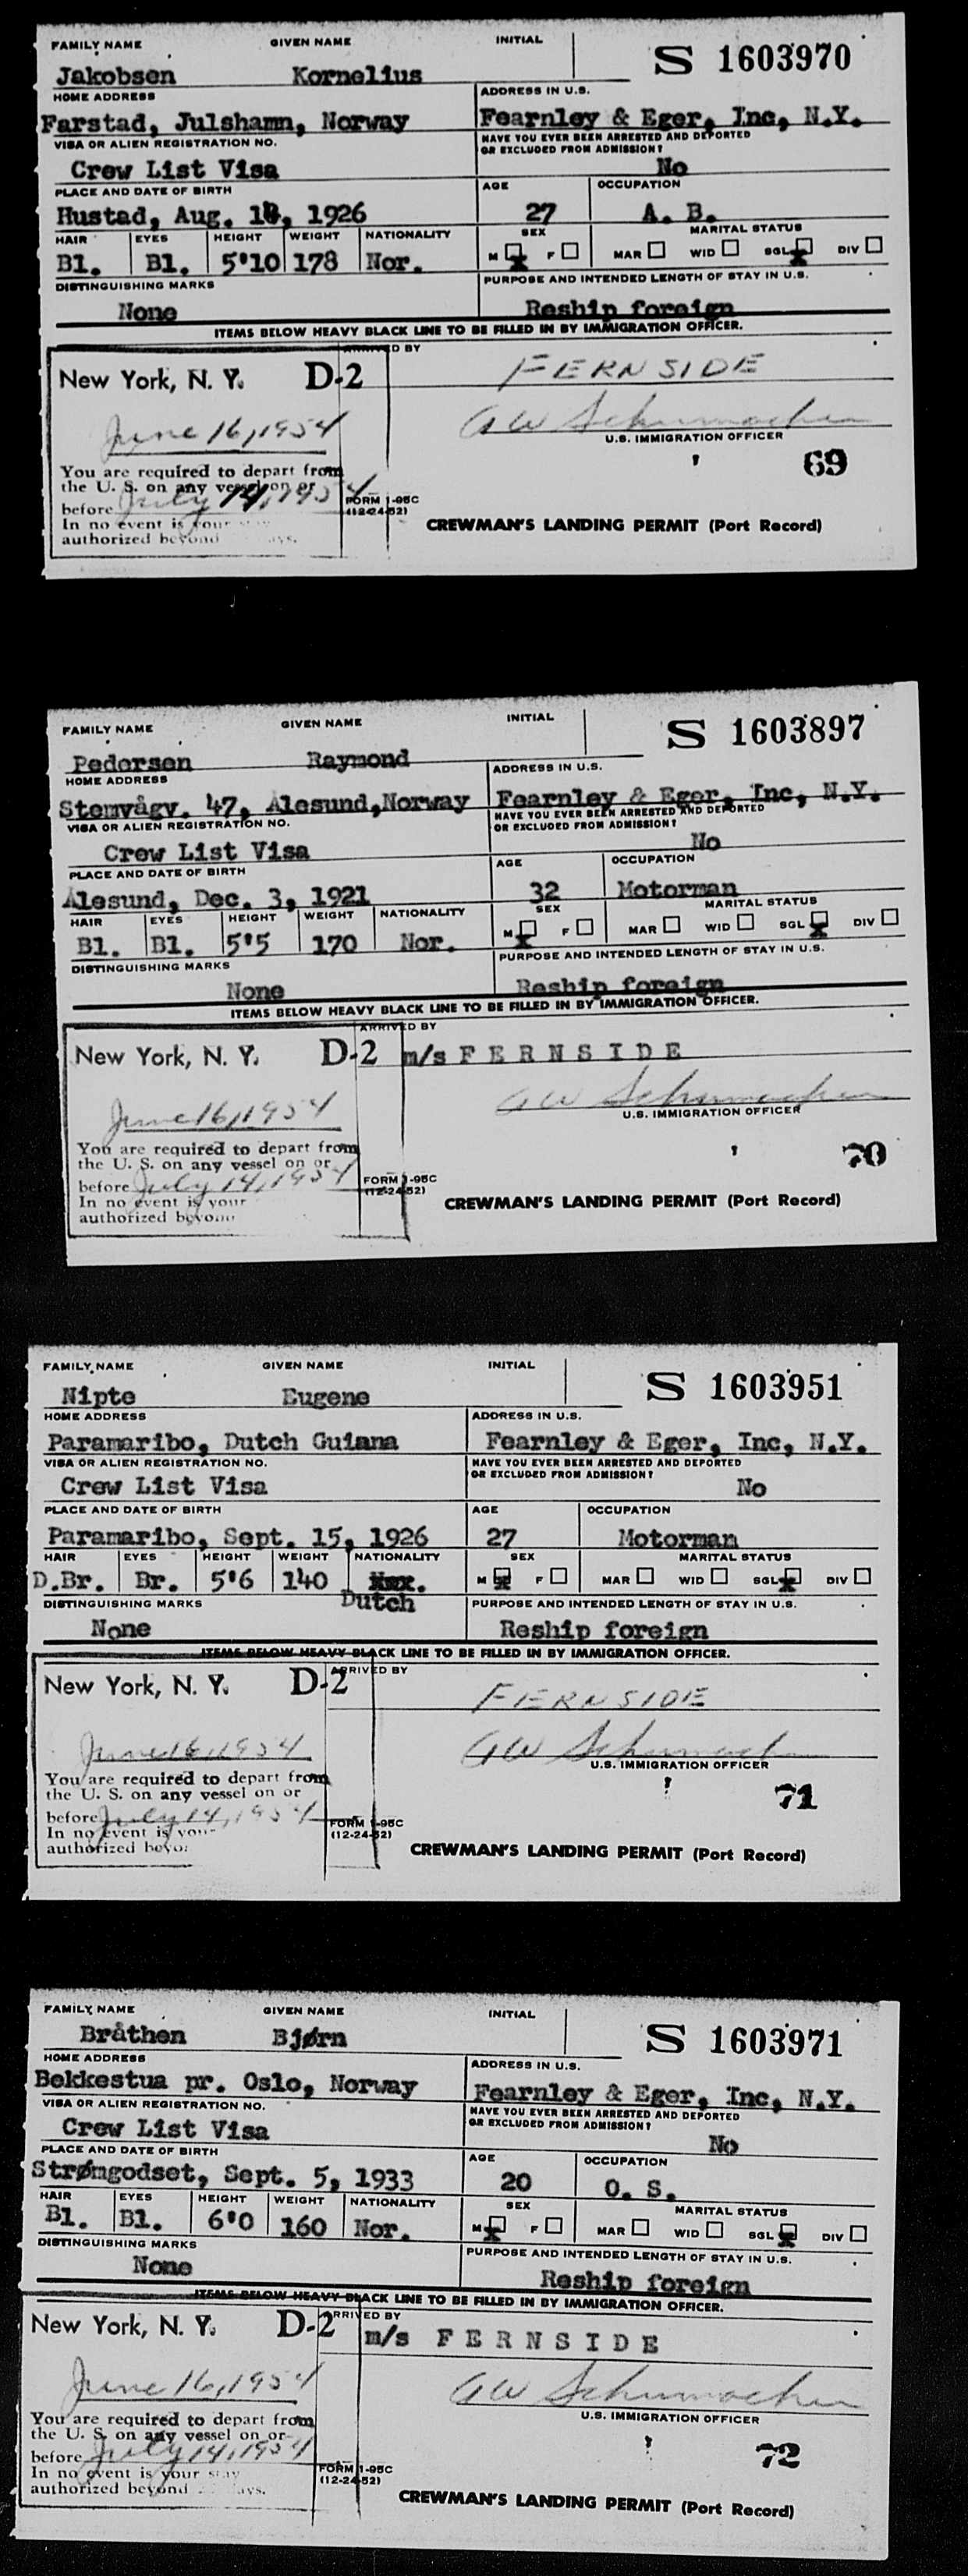 FAMILY NAME GIVEN NAME INITIAL S 1603970
Jakobsen Kornelius
HOME ADDRESS ADDRESS IN U.S.
Farstad, Julshamn, Norway Fearnley & Eger, Inc, N.Y.
VISA OR ALIEN REGISTRATION NO. HAVE YOU EVER BEEN ARRESTED AND DEPORTED
OR EXCLUDED FROM ADMISSION?
Crew List Visa No
PLACE AND DATE OF BIRTH AGE OCCUPATION
Hustad, Aug. , 1926 27 A. B.
HAIR EYES HEIGHT WEIGHT NATIONALITY SEX MARITAL STATUS
Bl. Bl. 5'10 178 Nor. M F MAR WID SGL DIV
DISTINGUISHING MARKS PURPOSE AND INTENDED LENGTH OF STAY IN U.S.
None Reship foreign
ITEMS BELOW HEAVY BLACK LINE TO BE FILLED IN BY IMMIGRATION OFFICER.
ARRIVED BY
New York, N. Y. D-2 FERNSIDE
June 16, 1954 AW Schumacher
U.S. IMMIGRATION OFFICER
69
You are required to depart from
the U. S. on any vessel on or
before July 14, 1954 FORM I-95C
(12-24-52)
In no event is your stay
authorized beyond days.
CREWMAN'S LANDING PERMIT (Port Record)
FAMILY NAME GIVEN NAME INITIAL S 1603897
Pedersen Raymond
HOME ADDRESS ADDRESS IN U.S.
Stemvågv. 47, Alesund,Norway Fearnley & Eger, Inc, N.Y.
VISA OR ALIEN REGISTRATION NO. HAVE YOU EVER BEEN ARRESTED AND DEPORTED
OR EXCLUDED FROM ADMISSION?
Crew List Visa No
PLACE AND DATE OF BIRTH AGE OCCUPATION
Alesund, Dec. 3, 1921 32 Motorman
HAIR EYES HEIGHT WEIGHT NATIONALITY SEX MARITAL STATUS
Bl. Bl. 5'5 170 Nor. M F MAR WID SGL DIV
DISTINGUISHING MARKS PURPOSE AND INTENDED LENGTH OF STAY IN U.S.
None Reship foreign
ITEMS BELOW HEAVY BLACK LINE TO BE FILLED IN BY IMMIGRATION OFFICER.
ARRIVED BY
New York, N. Y. D-2 m/s FERNSIDE
June 16, 1954 AW Schumacher
U.S. IMMIGRATION OFFICER
70
You are required to depart from
the U. S. on any vessel on or
before July 14, 1954 FORM I-95C
(12-24-52)
In no event is your
authorized beyond
CREWMAN'S LANDING PERMIT (Port Record)
FAMILY NAME GIVEN NAME INITIAL S 1603951
Nipte Eugene
HOME ADDRESS ADDRESS IN U.S.
Paramaribo, Dutch Guiana Fearnley & Eger, Inc, N.Y.
VISA OR ALIEN REGISTRATION NO. HAVE YOU EVER BEEN ARRESTED AND DEPORTED
OR EXCLUDED FROM ADMISSION?
Crew List Visa No
PLACE AND DATE OF BIRTH AGE OCCUPATION
Paramaribo, Sept. 15, 1926 27 Motorman
HAIR EYES HEIGHT WEIGHT NATIONALITY SEX MARITAL STATUS
D.Br. Br. 5'6 140 M F MAR WID SGL DIV
Dutch
DISTINGUISHING MARKS PURPOSE AND INTENDED LENGTH OF STAY IN U.S.
None Reship foreign
ITEMS BELOW HEAVY BLACK LINE TO BE FILLED IN BY IMMIGRATION OFFICER.
ARRIVED BY
New York, N. Y. D-2 FERNSIDE
June 16, 1954 AW Schumacher
U.S. IMMIGRATION OFFICER
71
You are required to depart from
the U. S. on any vessel on or
before July 14, 1954 FORM I-95C
(12-24-52)
In no event is your
authorized beyo
CREWMAN'S LANDING PERMIT (Port Record)
FAMILY NAME GIVEN NAME INITIAL S 1603971
Bråthen Bjørn
HOME ADDRESS ADDRESS IN U.S.
Bekkestua pr. Oslo, Norway Fearnley & Eger, Inc, N.Y.
VISA OR ALIEN REGISTRATION NO. HAVE YOU EVER BEEN ARRESTED AND DEPORTED
OR EXCLUDED FROM ADMISSION?
Crew List Visa No
PLACE AND DATE OF BIRTH AGE OCCUPATION
Strømgodset, Sept. 5, 1933 20 O. S.
HAIR EYES HEIGHT WEIGHT NATIONALITY SEX MARITAL STATUS
Bl. Bl. 6'0 160 Nor. M F MAR WID SGL DIV
DISTINGUISHING MARKS PURPOSE AND INTENDED LENGTH OF STAY IN U.S.
None Reship foreign
ITEMS BELOW HEAVY BLACK LINE TO BE FILLED IN BY IMMIGRATION OFFICER.
ARRIVED BY
New York, N. Y. D-2 m/s FERNSIDE
June 16, 1954 AW Schumacher
U.S. IMMIGRATION OFFICER
72
You are required to depart from
the U. S. on any vessel on or
before July 14, 1954 FORM I-95C
(12-24-52)
In no event is your stay
authorized beyond days.
CREWMAN'S LANDING PERMIT (Port Record)